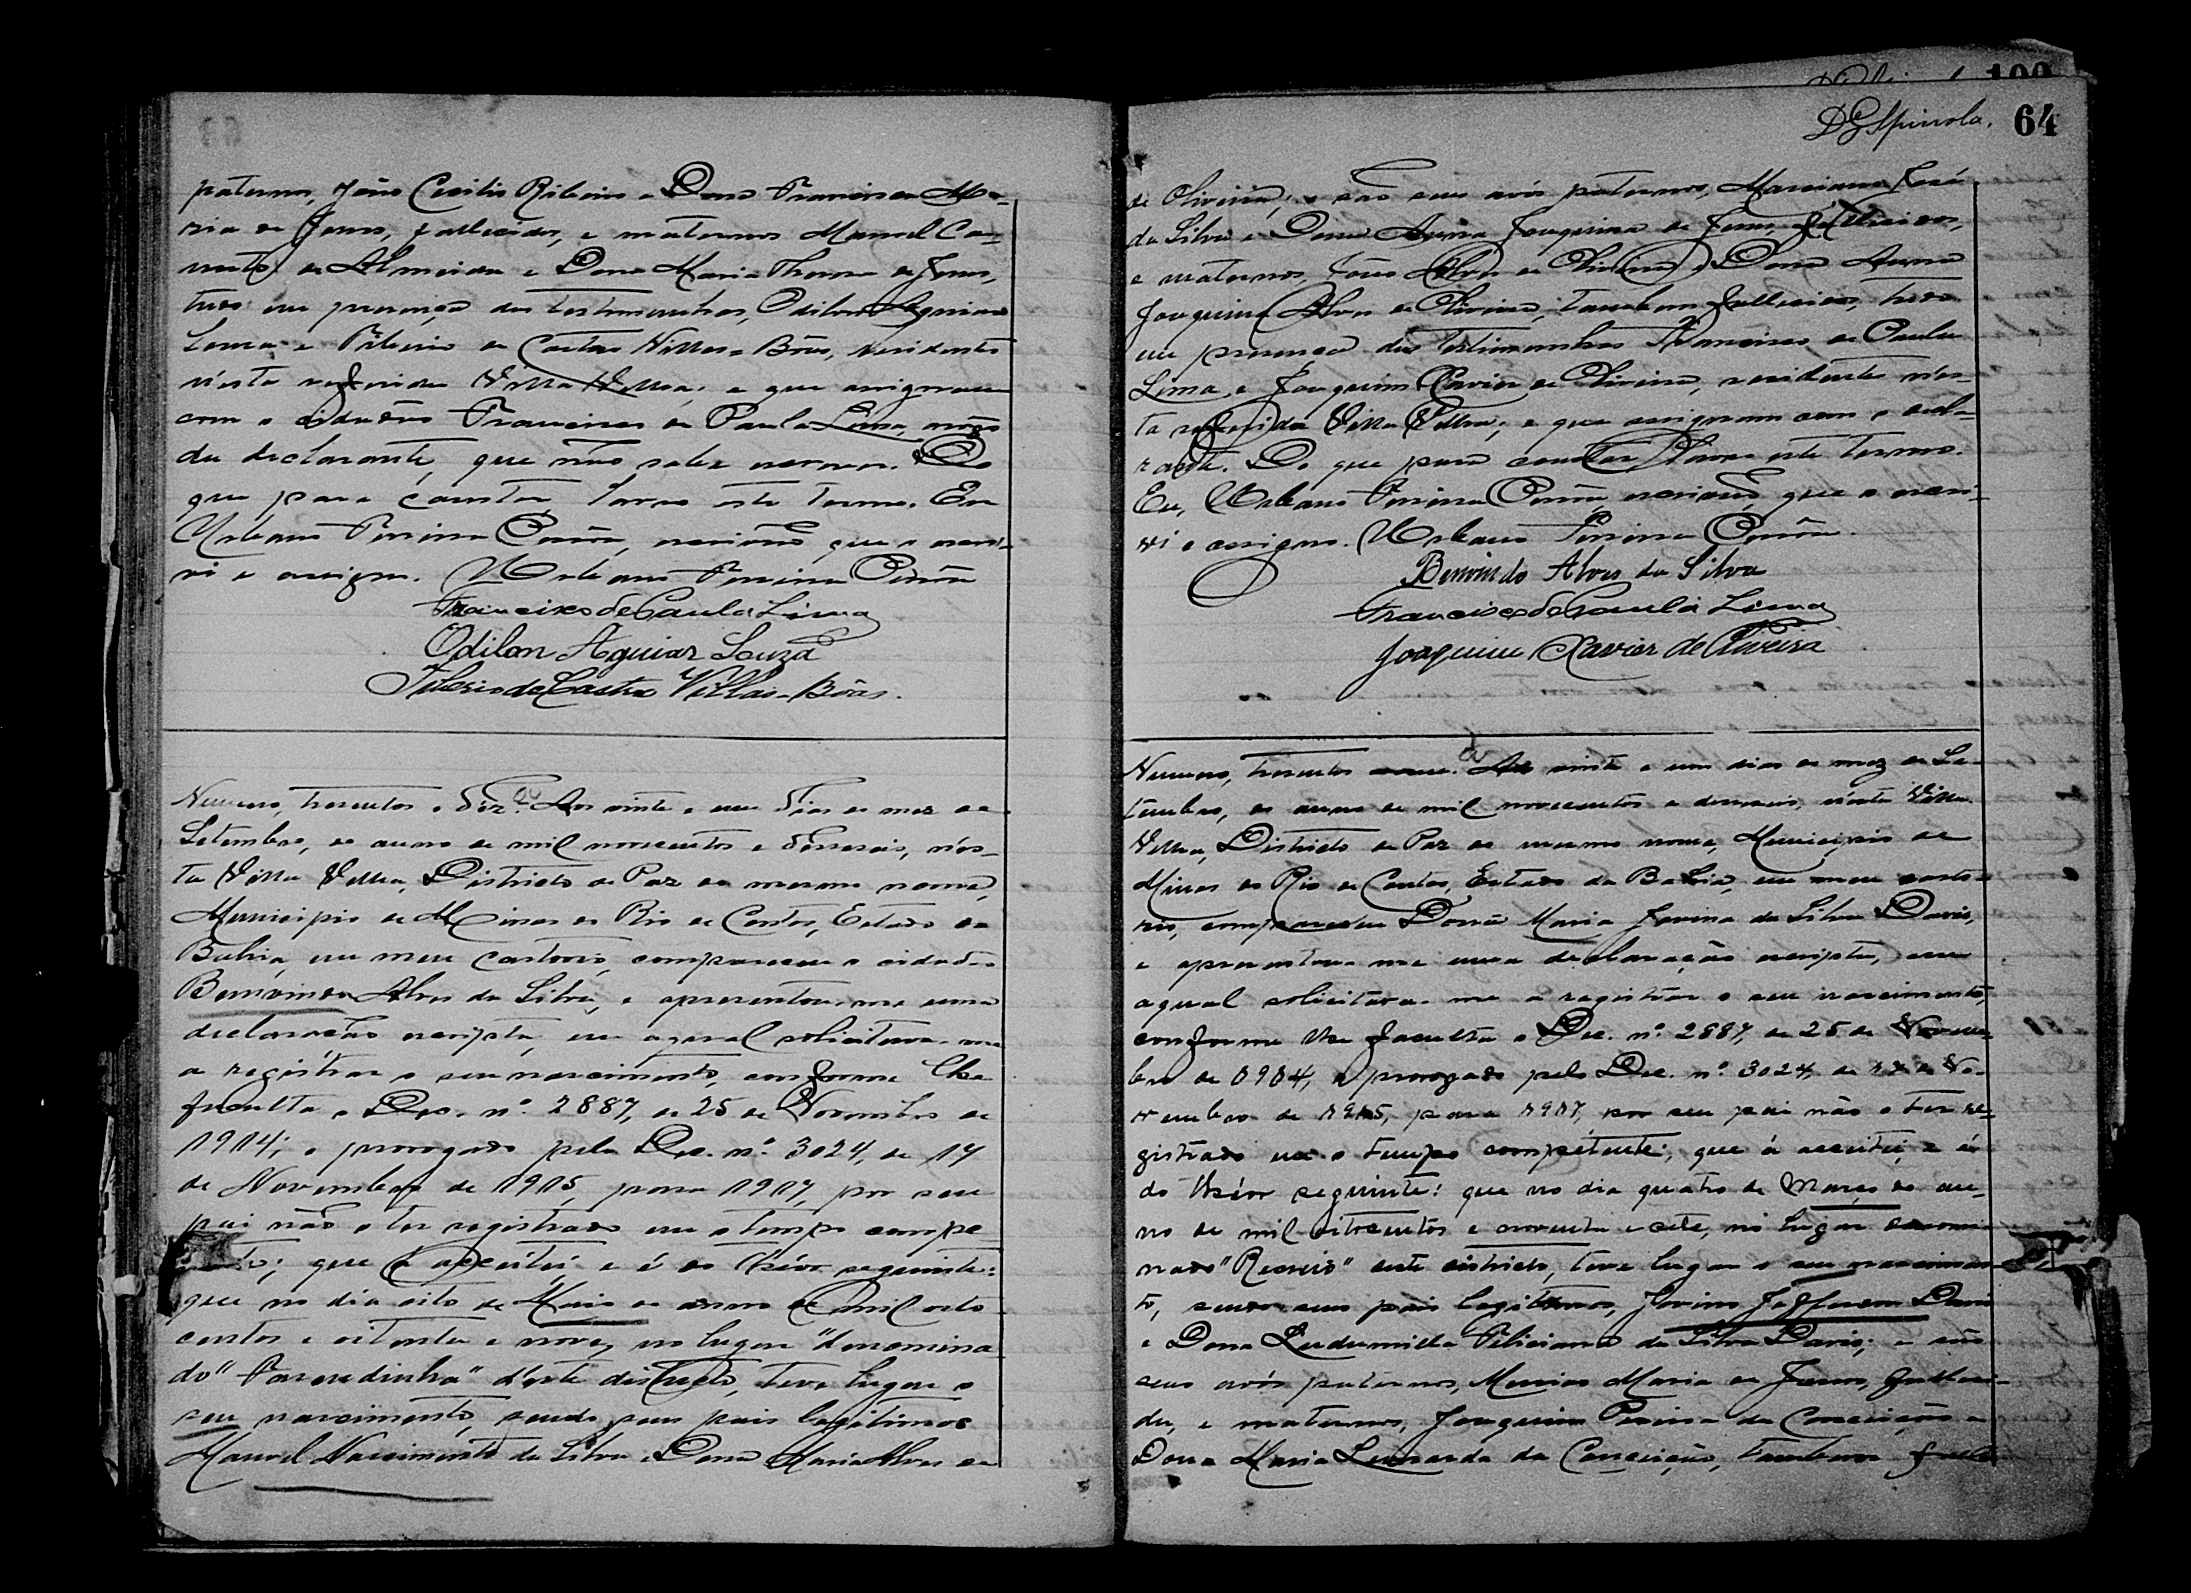 paternos, João Cecilio Ribeiro e Dona Francisca Ma-
ria de Jesus, fallecidos, e maternos Manoel Ca-
de Almeida e Dona Maria Theresa de Jesus,
tudo em presença das testemunhas, Odilon Aguiar
Souza e Tiberio de Castro Villas-Bôas, residentes
n'esta referida Villa Velha, e que assignam
com o cidadão Francisco de Paula Lima, a rôgo
da declarante, que não sabe escrever. Do
que para constar, lavro este termo. Eu
Urbano Pereira Corrêa, escrivão que o escre-
vi e assigno. Urbano Pereira Corrêa
Francisco de Paula Lima
Odilon Aguiar Souza
Tiberio de Castro Villas-Bôas.
Numero, tresentos e dez. Aos vinte e um dias do mez de
Setembro, do anno de mil novecentos e desesseis, n'es-
ta Villa Velha, Districto de Paz do mesmo nome,
Municipio de Minas do Rio de Contas, Estado da
Bahia, em meu cartorio, compareceu o cidadão
Bemvindo Alves da Silva, e apresentou-me uma
declaração escripta, em a qual solicitava-me
a registrar o seu nascimento, conforme lhe
faculta o Dec. nº. 2887, de 25 de Novembro de
1914; e prorogado pelo Dec. nº. 3024, de 17
de Novembro de 1915, para 1917, por seu
pai não o ter registrado em o tempo compe-
que a acceitei, e é do theor seguinte:
que no dia oito de Maio do anno de mil oito
centos e oitenta e nove, no lugar "denomina-
do" Fasendinha" d'este districto, teve lugar o
seu nascimento, sendo seus pais legitimos
Manoel Nascimento da Silva e Dona Maria Alves de
DGSpinola. 64
de Oliveira; e são seus avós paternos, Marciano José
da Silva e Dona Anna Joaquina de Jesus, fallecidos,
e maternos, João Alves de Oliveira e Dona Anna
Joaquina Alves de Oliveira, tambem fallecidos, tudo
em presença das testemunhas Francisco de Paula
Lima, e Joaquim Xavier de Oliveira, residentes n'es-
ta referida Villa Velha; e que assignam com o decla-
rante. Do que para constar, lavro este termo.
Eu, Urbano Pereira Corrêa, escrivão, que o escre-
vi e assigno. Urbano Pereira Corrêa.
Bemvindo Alves da Silva
Francisco de Paula Lima
Joaquim Xavier de Oliveira
Numero, tresentos onze. Aos vinte e um dias do mez de Se-
tembro, do anno de mil novecentos e desesseis, n'esta Villa
Velha, Districto de Paz do mesmo nome, Municipio de
Minas do Rio de Contas, Estado da Bahia, em meu carto-
rio, compareceu Dona Maria Jovina da Silva Davis,
e apresentou-me uma declaração escripta, em
a qual solicitava-me a registrar o seu nascimento,
conforme lhe faculta o Dec. nº. 2887, de 25 de Novem-
bro de 1914, e prorogado pelo Dec. nº. 3024, de 17 de No-
vembro de 1915, para 1917, por seu pai não o ter re-
gistrado em o tempo competente; que á acceitei, e é
do theor seguinte: que no dia quatro de Março do an-
no de mil oitocentos e noventa e sete, no lugar denomi-
nado "Recreio" deste districto, teve lugar o seu nascimen-
to, sendo seus pais legitimos, Jovino Jefferson Davis
e Dona Ludumilla Feliciana da Silva Davis; e são
seus avós paternos, Maria de Jesus, falleci-
da, e maternos, Joaquim Pereira da Conceição e
Dona Maria Leonarda da Conceição, tambem falle-